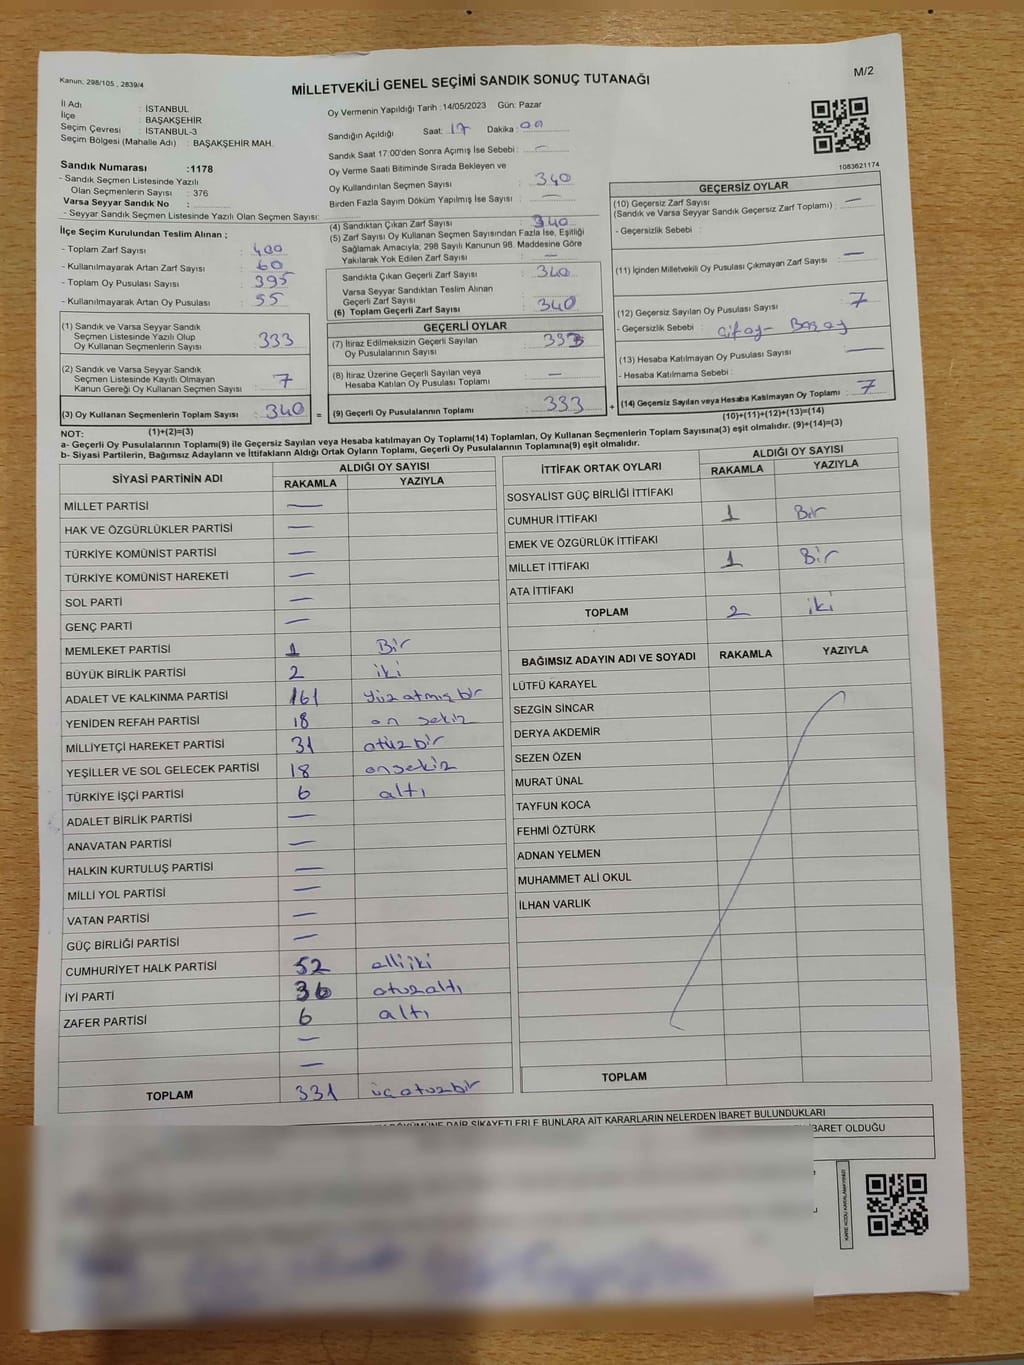 Kanun, 298/105 , 2839/4
MİLLETVEKİLİ GENEL SEÇİMİ SANDIK SONUÇ TUTANAĞI
M/2
İl Adı : İSTANBUL
İlçe : BAŞAKŞEHİR
Seçim Çevresi : İSTANBUL-3
Seçim Bölgesi (Mahalle Adı) : BAŞAKŞEHİR MAH.
Sandık Numarası :1178
- Sandık Seçmen Listesinde Yazılı
Olan Seçmenlerin Sayısı : 376
Varsa Seyyar Sandık No :
- Seyyar Sandık Seçmen Listesinde Yazılı Olan Seçmen Sayısı:
Oy Vermenin Yapıldığı Tarih :14/05/2023 Gün: Pazar
Sandığın Açıldığı Saat: 17 Dakika : 00
Sandık Saat 17:00'den Sonra Açımış İse Sebebi : —
Oy Verme Saati Bitiminde Sırada Bekleyen ve
Oy Kullandırılan Seçmen Sayısı : 340
Birden Fazla Sayım Döküm Yapılmış İse Sayısı : —
1083621174
İlçe Seçim Kurulundan Teslim Alınan ;
- Toplam Zarf Sayısı : 400
- Kullanılmayarak Artan Zarf Sayısı : 60
- Toplam Oy Pusulası Sayısı : 395
- Kullanılmayarak Artan Oy Pusulası : 55
(1) Sandık ve Varsa Seyyar Sandık
Seçmen Listesinde Yazılı Olup
Oy Kullanan Seçmenlerin Sayısı : 333
(2) Sandık ve Varsa Seyyar Sandık
Seçmen Listesinde Kayıtlı Olmayan
Kanun Gereği Oy Kullanan Seçmen Sayısı : 7
(3) Oy Kullanan Seçmenlerin Toplam Sayısı : 340 =
(1)+(2)=(3)
(4) Sandıktan Çıkan Zarf Sayısı : 340
(5) Zarf Sayısı Oy Kullanan Seçmen Sayısından Fazla İse, Eşitliği
Sağlamak Amacıyla, 298 Sayılı Kanunun 98. Maddesine Göre
Yakılarak Yok Edilen Zarf Sayısı : —
Sandıkta Çıkan Geçerli Zarf Sayısı : 340
Varsa Seyyar Sandıktan Teslim Alınan
Geçerli Zarf Sayısı :
(6) Toplam Geçerli Zarf Sayısı : 340
GEÇERLİ OYLAR
(7) İtiraz Edilmeksizin Geçerli Sayılan
Oy Pusulalarının Sayısı : 333
(8) İtiraz Üzerine Geçerli Sayılan veya
Hesaba Katılan Oy Pusulası Toplamı : —
(9) Geçerli Oy Pusulalarının Toplamı : 333 +
GEÇERSİZ OYLAR
(10) Geçersiz Zarf Sayısı : —
(Sandık ve Varsa Seyyar Sandık Geçersiz Zarf Toplamı) :
- Geçersizlik Sebebi :
(11) İçinden Milletvekili Oy Pusulası Çıkmayan Zarf Sayısı : —
(12) Geçersiz Sayılan Oy Pusulası Sayısı : 7
- Geçersizlik Sebebi :
(13) Hesaba Katılmayan Oy Pusulası Sayısı : —
- Hesaba Katılmama Sebebi :
(14) Geçersiz Sayılan veya Hesaba Katılmayan Oy Toplamı : 7
(10)+(11)+(12)+(13)=(14)
NOT:
a- Geçerli Oy Pusulalarının Toplamı(9) ile Geçersiz Sayılan veya Hesaba katılmayan Oy Toplamı(14) Toplamları, Oy Kullanan Seçmenlerin Toplam Sayısına(3) eşit olmalıdır. (9)+(14)=(3)
b- Siyasi Partilerin, Bağımsız Adayların ve İttifakların Aldığı Ortak Oyların Toplamı, Geçerli Oy Pusulalarının Toplamına(9) eşit olmalıdır.
SİYASİ PARTİNİN ADI ALDIĞI OY SAYISI
RAKAMLA YAZIYLA
MİLLET PARTİSİ —
HAK VE ÖZGÜRLÜKLER PARTİSİ —
TÜRKİYE KOMÜNİST PARTİSİ —
TÜRKİYE KOMÜNİST HAREKETİ —
SOL PARTİ —
GENÇ PARTİ —
MEMLEKET PARTİSİ 1 Bir
BÜYÜK BİRLİK PARTİSİ 2 iki
ADALET VE KALKINMA PARTİSİ 161 yüz atmış bir
YENİDEN REFAH PARTİSİ 18 on sekiz
MİLLİYETÇİ HAREKET PARTİSİ 31 otuz bir
YEŞİLLER VE SOL GELECEK PARTİSİ 18 onsekiz
TÜRKİYE İŞÇİ PARTİSİ 6 altı
ADALET BİRLİK PARTİSİ —
ANAVATAN PARTİSİ —
HALKIN KURTULUŞ PARTİSİ —
MİLLİ YOL PARTİSİ —
VATAN PARTİSİ —
GÜÇ BİRLİĞİ PARTİSİ —
CUMHURİYET HALK PARTİSİ 52 elli iki
İYİ PARTİ 36 otuz altı
ZAFER PARTİSİ 6 altı
—
—
TOPLAM 331 üç otuz bir
İTTİFAK ORTAK OYLARI ALDIĞI OY SAYISI
RAKAMLA YAZIYLA
SOSYALİST GÜÇ BİRLİĞİ İTTİFAKI
CUMHUR İTTİFAKI 1 Bir
EMEK VE ÖZGÜRLÜK İTTİFAKI
MİLLET İTTİFAKI 1 Bir
ATA İTTİFAKI
TOPLAM 2 iki
BAĞIMSIZ ADAYIN ADI VE SOYADI RAKAMLA YAZIYLA
LÜTFÜ KARAYEL
SEZGİN SİNCAR
DERYA AKDEMİR
SEZEN ÖZEN
MURAT ÜNAL
TAYFUN KOCA
FEHMİ ÖZTÜRK
ADNAN YELMEN
MUHAMMET ALİ OKUL
İLHAN VARLIK
TOPLAM
DÖKÜMÜNE DAİR ŞİKAYETLERLE BUNLARA AİT KARARLARIN NELERDEN İBARET BULUNDUKLARI
İBARET OLDUĞU